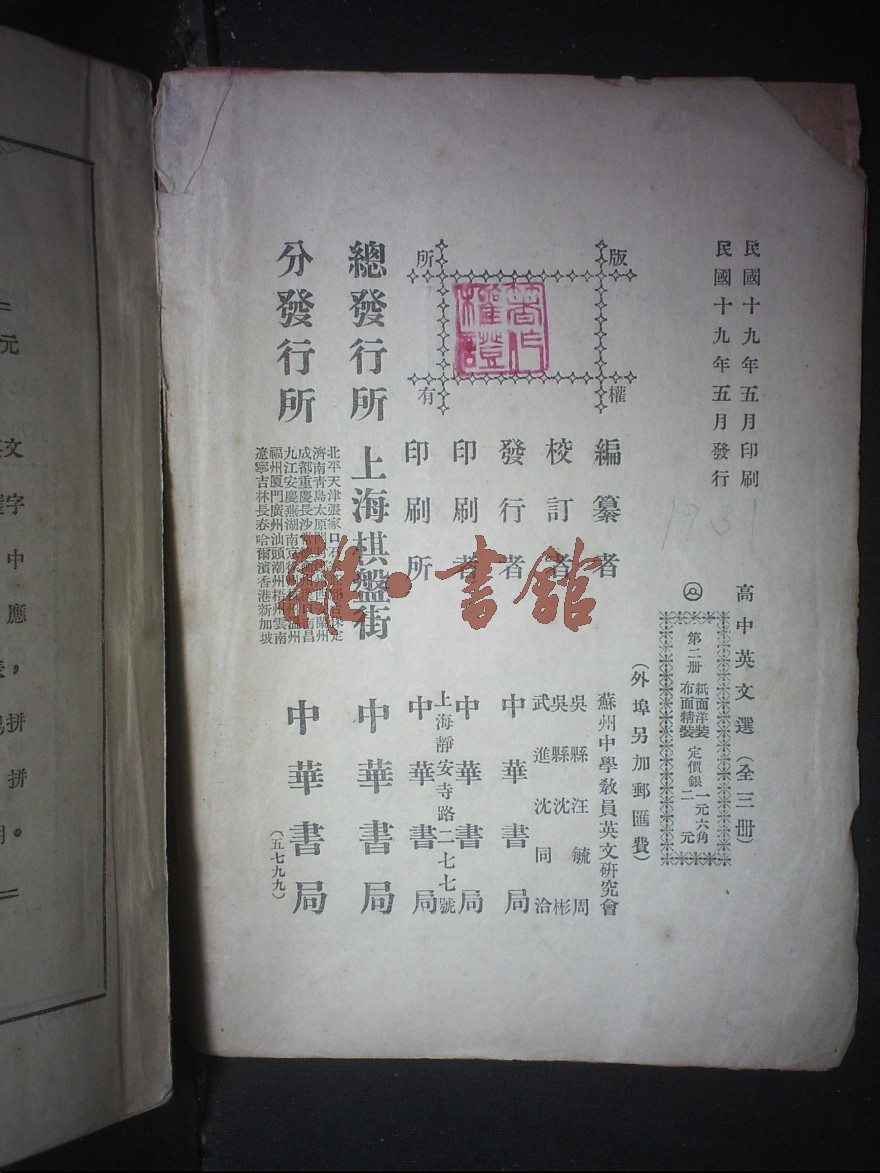 民國十九年五月印刷
民國十九年五月發行
高中英文選（全三冊）
第二册 紙面洋裝 布面精裝 定價銀 一元六角 二元
（外埠另加郵匯費）
版權所有
著作權證
編纂者 蘇州中學教員英文研究會
校訂者 吳縣汪毓周
吳縣沈彬
武進沈同洽
發行者 中華書局
印刷者 中華書局
印刷所 上海靜安寺路二七七號
中華書局
總發行所 上海棋盤街 中華書局
分發行所
北平天津張家口 保定
濟南青島太原 蘭州
成都重慶長沙 南昌
九江安慶蕪湖南京 溫州
福州厦門廣州汕頭潮州梧州雲南
遼寧吉林長春哈爾濱香港新加坡
中華書局
（五七九九）
雜·書館
元
文
字
中
應
，
拼
拼
。